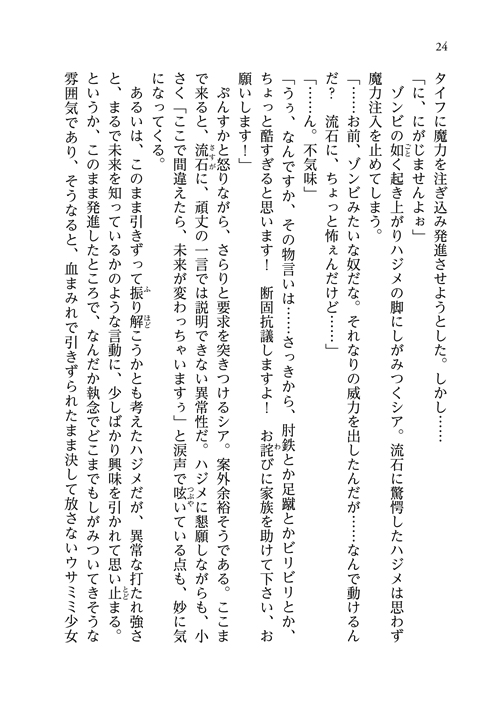 24
タイフに魔力を注ぎ込み発進させようとした。しかし……
「に、にがじませんよぉ」
ゾンビの如く起き上がりハジメの脚にしがみつくシア。流石に驚愕したハジメは思わず
魔力注入を止めてしまう。
「……お前、ゾンビみたいな奴だな。それなりの威力を出したんだが……なんで動けるん
だ？　流石に、ちょっと怖ぇんだけど……」
「……ん。不気味」
「うぅ、なんですか、その物言いは……さっきから、肘鉄とか足蹴とかビリビリとか、
ちょっと酷すぎると思います！　断固抗議しますよ！　お詫びに家族を助けて下さい、お
願いします！」
ぷんすかと怒りながら、さらりと要求を突きつけるシア。案外余裕そうである。ここま
で来ると、流石に、頑丈の一言では説明できない異常性だ。ハジメに懇願しながらも、小
さく「ここで間違えたら、未来が変わっちゃいますぅ」と涙声で呟いている点も、妙に気
になってくる。
あるいは、このまま引きずって振り解こうかとも考えたハジメだが、異常な打たれ強さ
と、まるで未来を知っているかのような言動に、少しばかり興味を引かれて思い止まる。
というか、このまま発進したところで、なんだか執念でどこまでもしがみついてきそうな
雰囲気であり、そうなると、血まみれで引きずられたまま決して放さないウサミミ少女